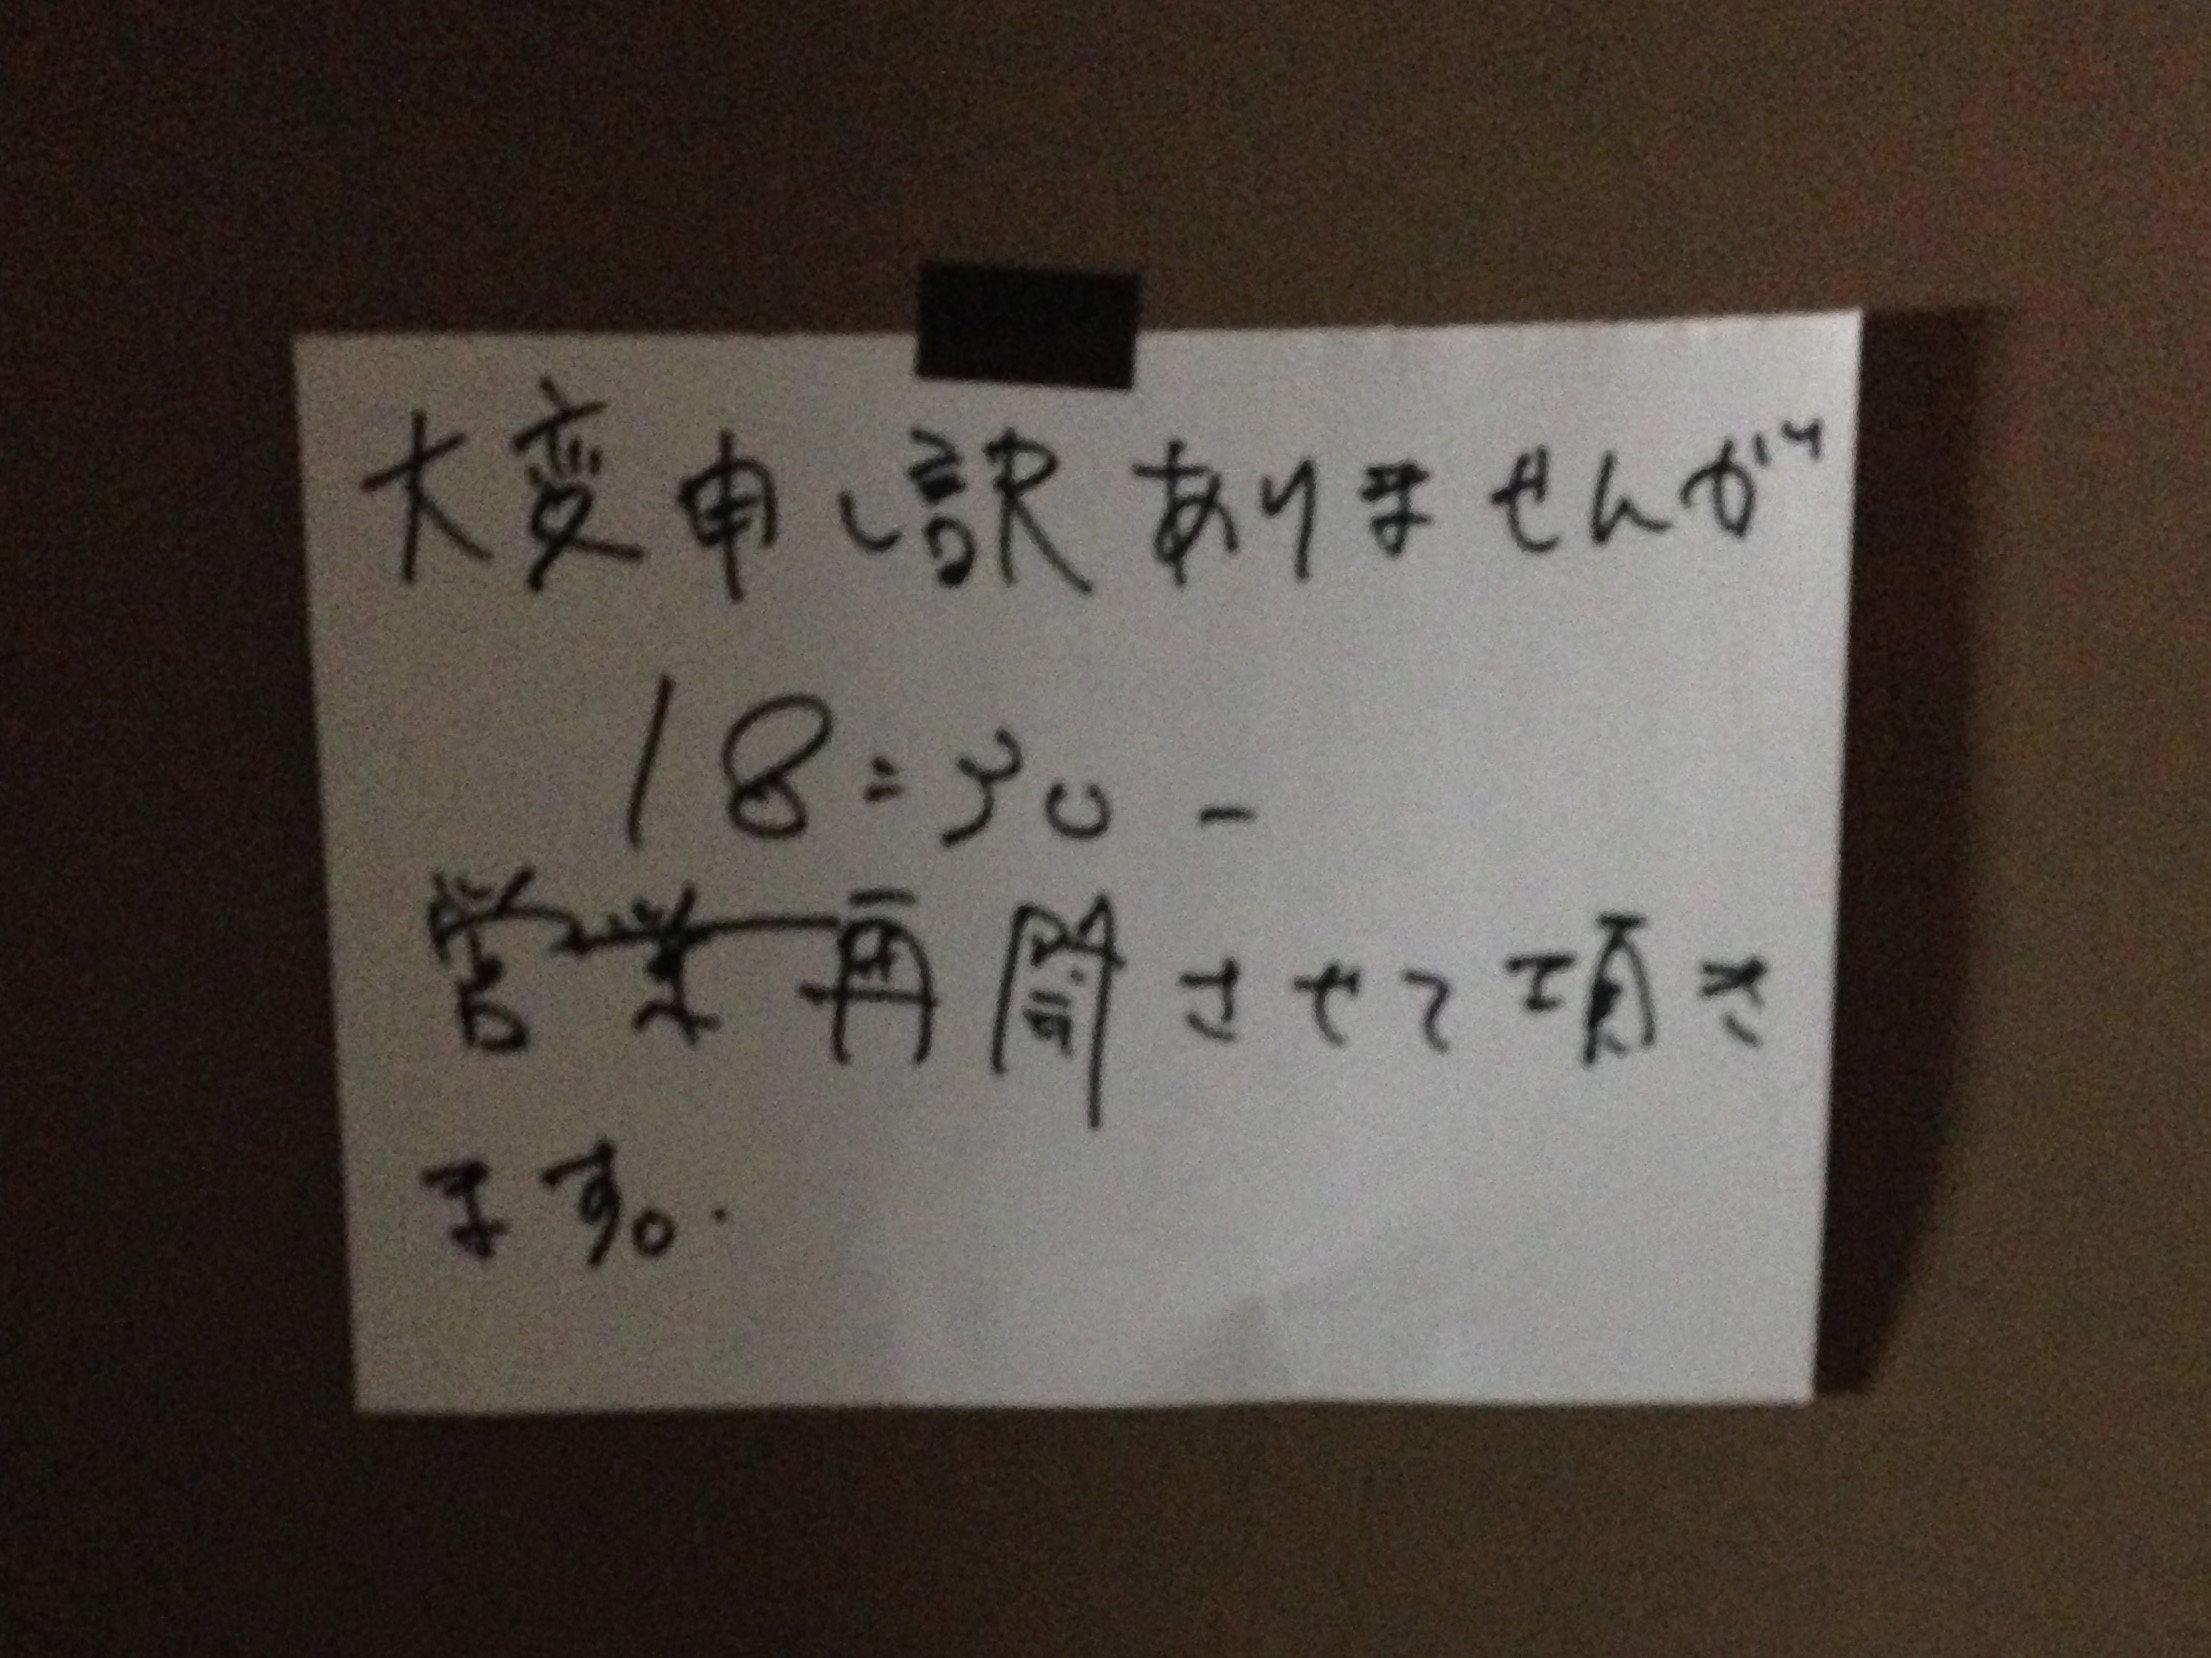 大変申し訳ありませんが
18:30-
営業再開させて頂き
ます。